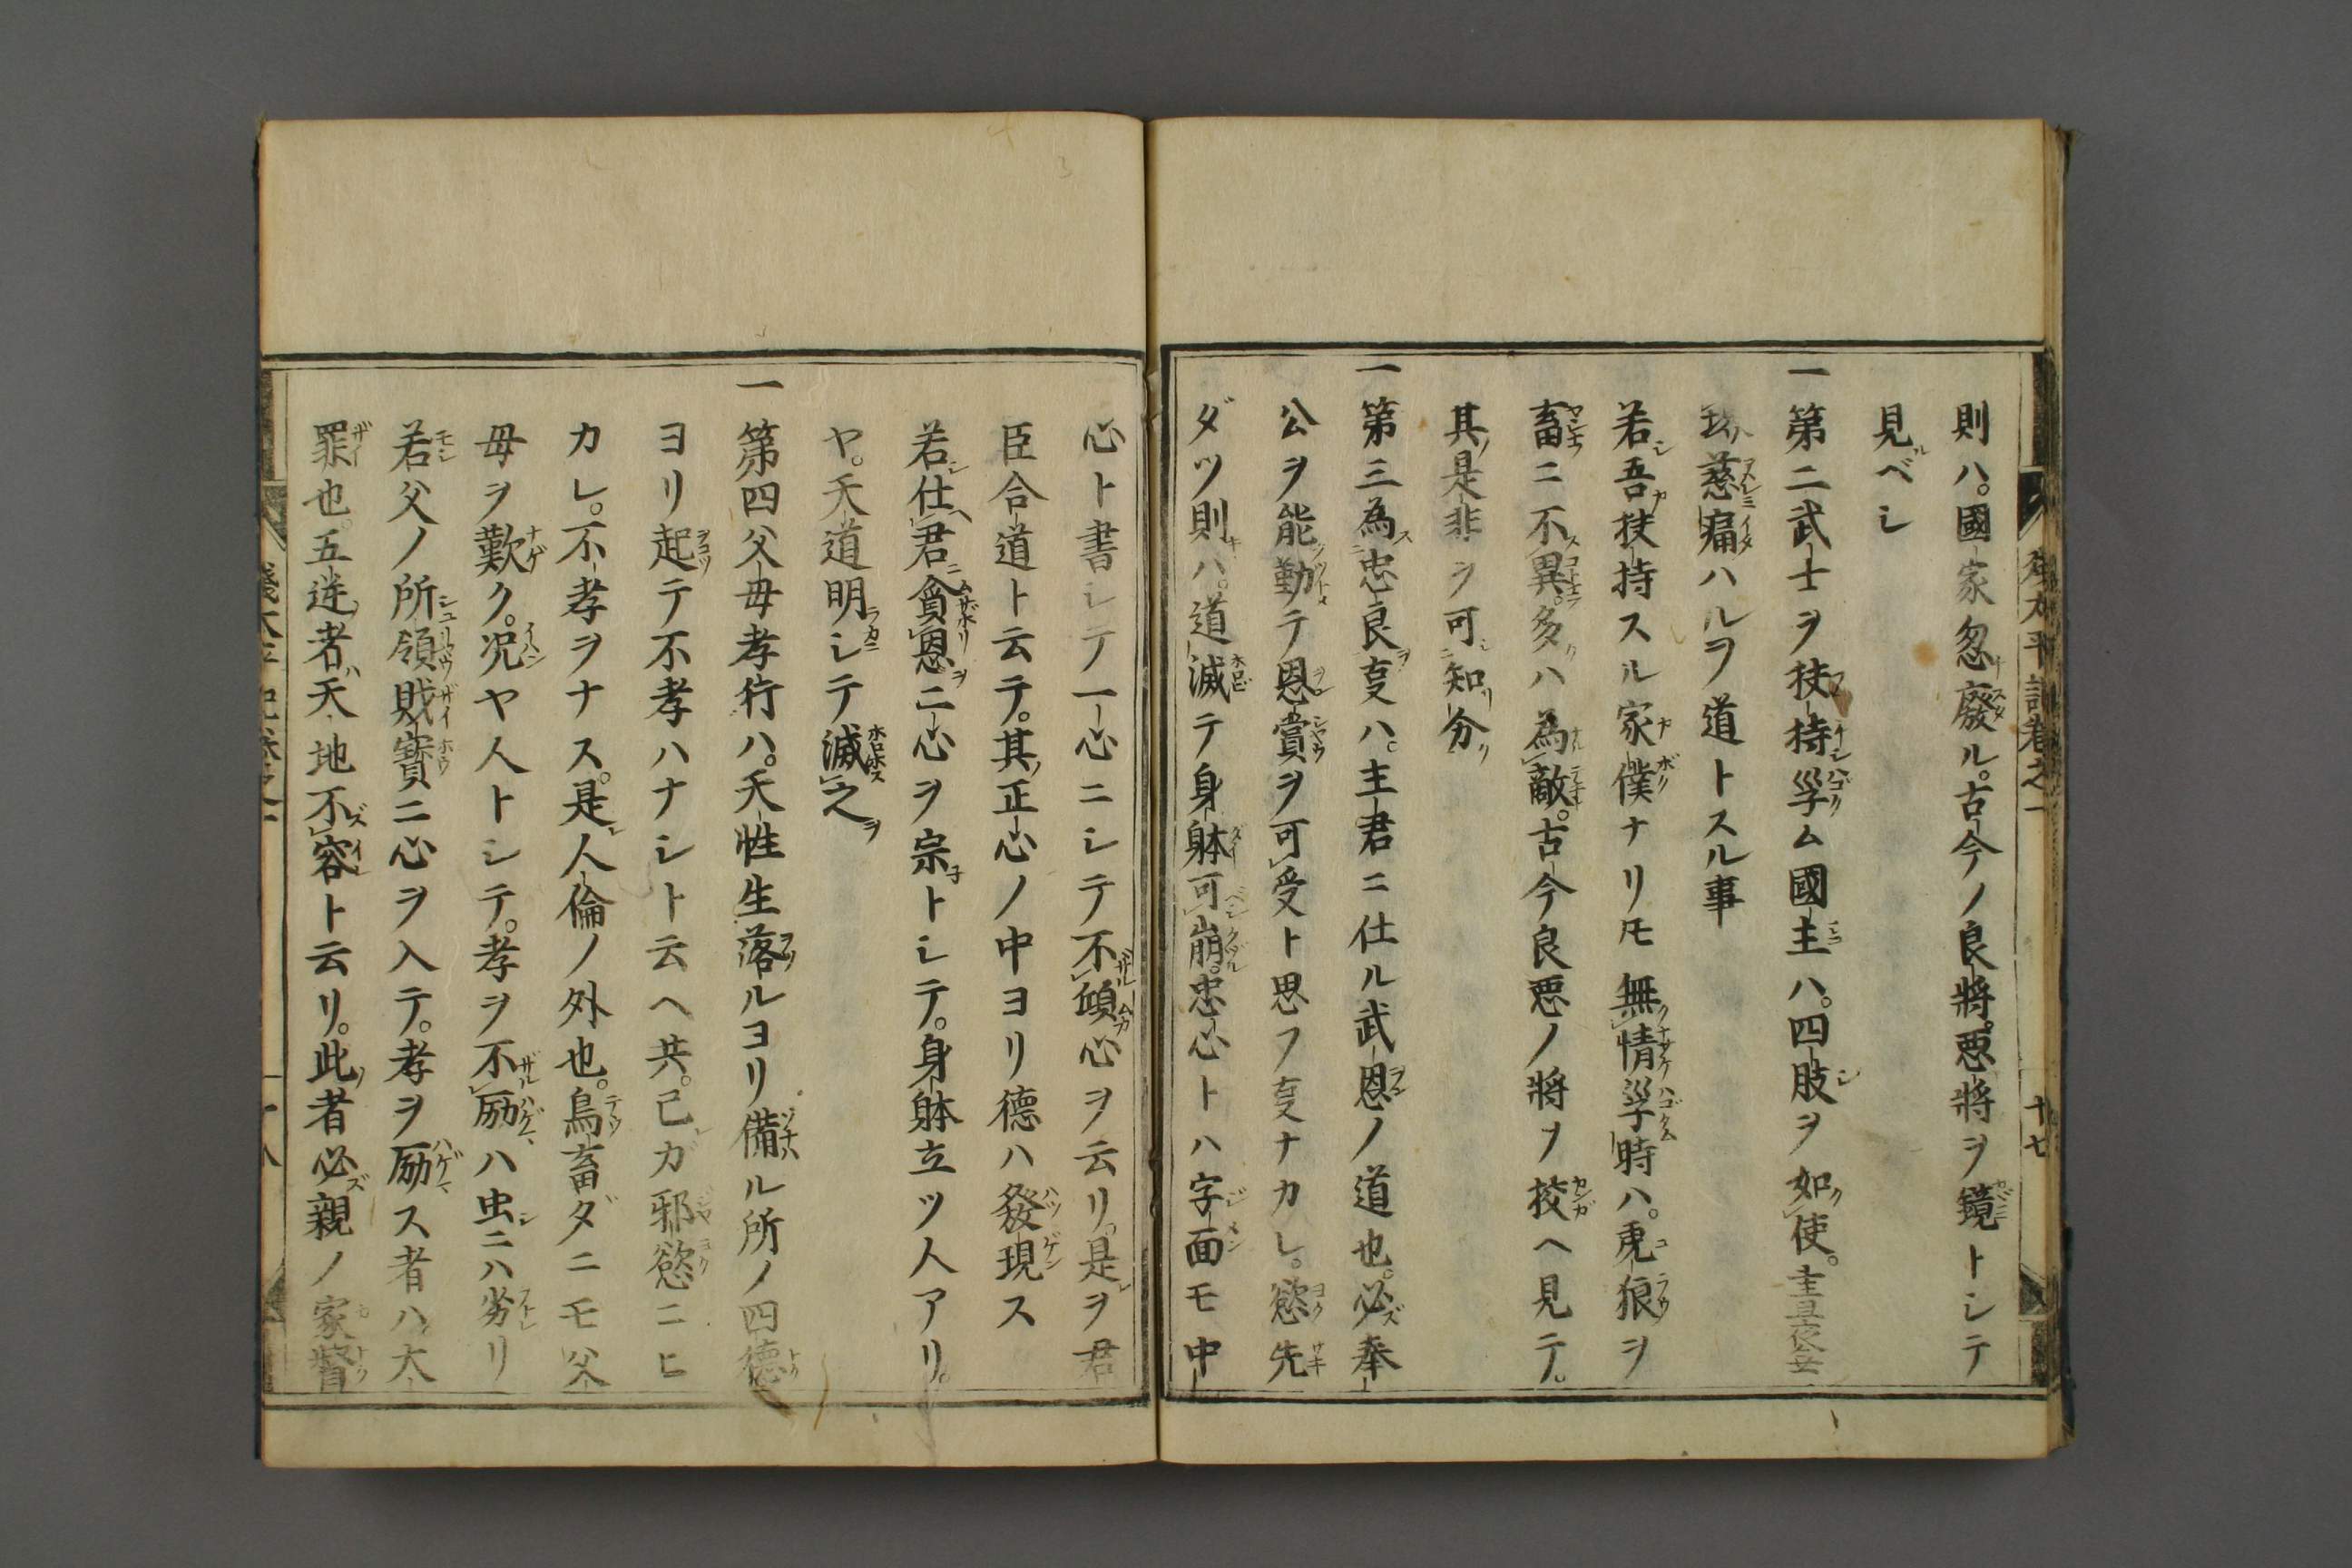 則ハ。國家忽廢ル。古今ノ良將。悪將ヲ鏡トシテ
見ベシ
一第二武士ヲ扶持孚ム國主ハ。四肢ヲ如使。主
慈痛ハルヲ道トスル事
若吾扶持スル家僕ナリモ無情孚時ハ。虎狼ヲ
畜ニ不異。多ハ為敵。古今良悪ノ將ヲ校ヘ見テ。
其是非ヲ可知分
一第三為忠良叓ハ。主君ニ仕ル武恩ノ道也。必奉
公ヲ能勤テ恩賞ヲ可受ト思フ叓ナカレ。慾先
ダツ則ハ。道滅テ身躰可崩。忠心トハ字面モ中
心ト書シテ一心ニシテ不傾心ヲ云リ。是ヲ君
臣合道ト云テ。其正心ノ中ヨリ德ハ發現ス
若仕君貪恩二心ヲ宗トシテ。身躰立ツ人アリ。
ヤ。天道明シテ滅之
一第四父母孝行ハ。天性生落ルヨリ備ル所ノ四德
ヨリ起テ不孝ハナシト云ヘ共。己ガ邪慾ニヒ
カレ。不孝ヲナス。是人倫ノ外也。鳥畜ダニモ父
母ヲ歎ク。况ヤ人トシテ。孝ヲ不励ハ虫ニハ劣リ
若父ノ所領財寶ニ心ヲ入テ。孝ヲ励ス者ハ大
罪也。五逆者天地不容ト云リ。此者必親ノ家督
十七
十八